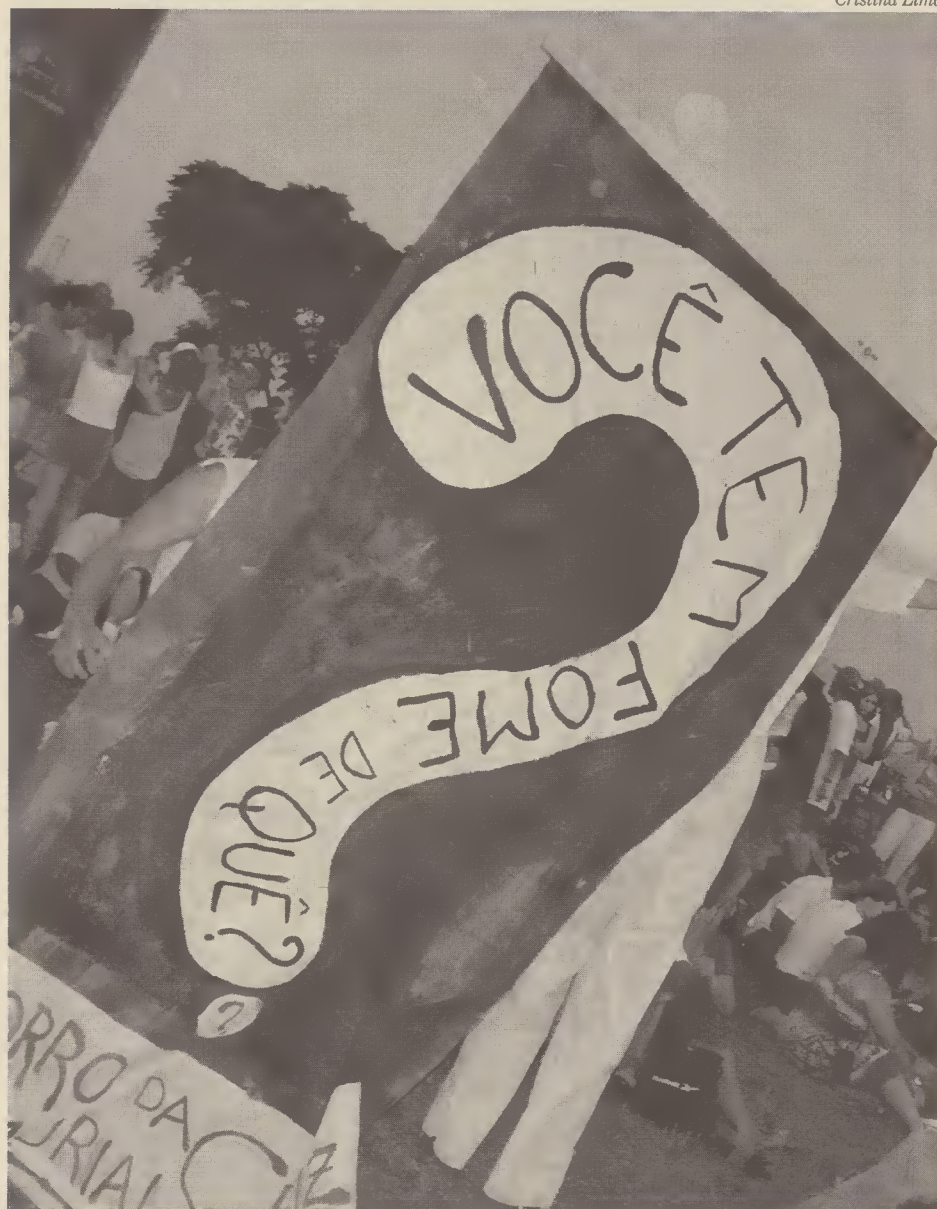 Cristina
VOCÊ TEM FOME DE QUÊ?
?
ORRO DA
URIAL